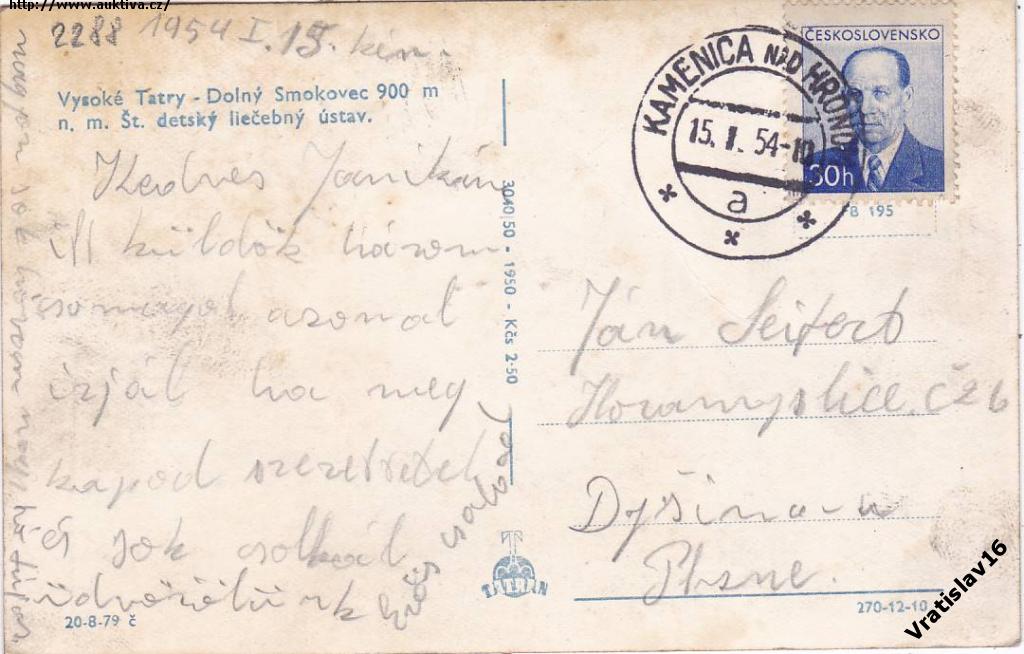 http://www.auktiva.cz/
2288 1954 I. 15.
Vysoké Tatry - Dolný Smokovec 900 m
n. m. Št. detský liečebný ústav.
Kedves Janikám
küldök három
csomagot azonal
írjál ha meg
kapod szeretetel
és sok csokkal
üdvözölünk
3040/50 - 1950 - Kčs 2·50
TATRAN
20-8-79 č
KAMENICA NAD HRONOM
15. I. 54-10
a
ČESKOSLOVENSKO
30h
FB 195
Ján Seifert
Horamyslice č 26
Dyšina
Plzne.
270-12-10
Vratislav16